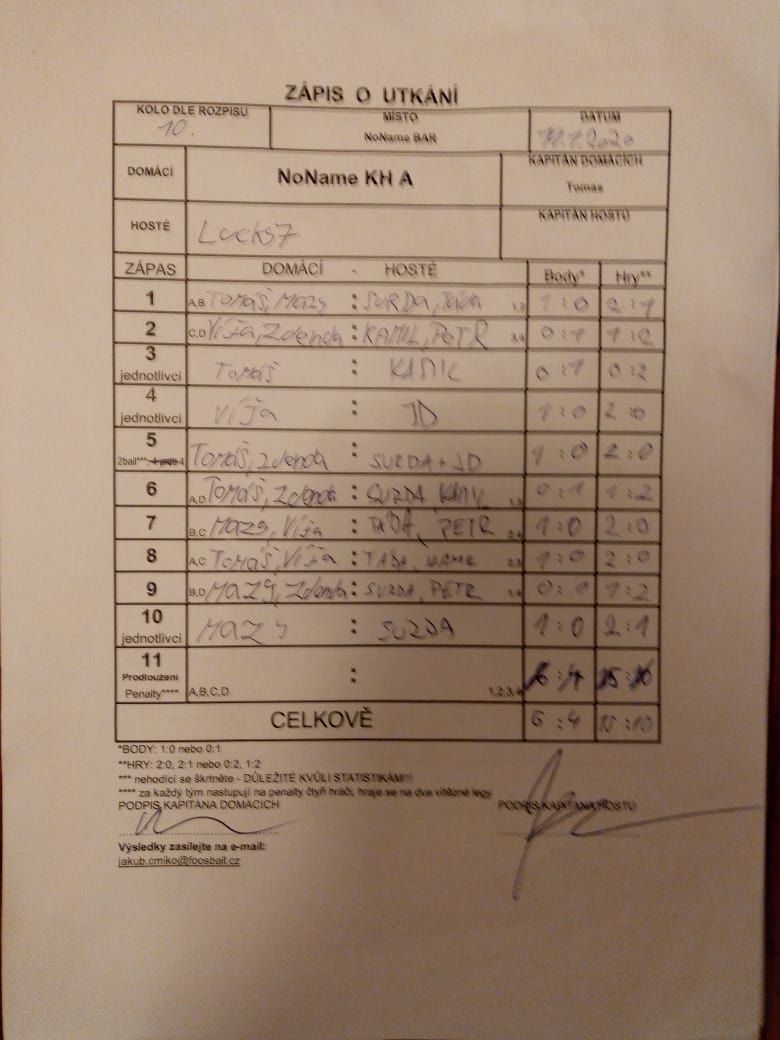 ZÁPIS O UTKÁNÍ
KOLO DLE ROZPISU MÍSTO DATUM
10. NoName BAR
DOMÁCÍ NoName KH A KAPITÁN DOMÁCÍCH
Tomáš
HOSTÉ Lucky7 KAPITÁN HOSTŮ
ZÁPAS DOMÁCÍ - HOSTÉ Body* Hry**
1 A,B Tomáš, Mazy : SURDA, TÁĎA 1,2 1:0 2:1
2 C,D Víťa, Zdenda : KAMIL, PETR 3,4 0:1 1:2
3 jednotlivci Tomáš : KAMIL 0:1 0:2
4 jednotlivci Víťa : JD 1:0 2:0
5 2ball***, 4 proti 4 Tomáš, Zdenda : SURDA + JD 1:0 2:0
6 A,D Tomáš, Zdenda : SURDA KAMIL 1,3 0:1 1:2
7 B,C Mazy, Víťa : TÁĎA, PETR 2,4 1:0 2:0
8 A,C Tomáš, Víťa : TÁĎA, KAMIL 2,3 1:0 2:0
9 B,D MAZY, Zdenda : SURDA, PETR 1,4 0:1 1:2
10 jednotlivci MAZY : SURDA 1:0 2:1
11 Prodloužení
Penalty**** A,B,C,D : 1,2,3,4
CELKOVĚ 6:4 15:10
*BODY: 1:0 nebo 0:1
**HRY: 2:0, 2:1 nebo 0:2, 1:2
*** nehodící se škrtněte - DŮLEŽITÉ KVŮLI STATISTIKÁM!!!
**** za každý tým nastupují na penalty čtyři hráči, hraje se na dva vítězné legy
PODPIS KAPITÁNA DOMÁCÍCH PODPIS KAPITÁNA HOSTŮ
Výsledky zasílejte na e-mail:
jakub.cmiko@foosball.cz